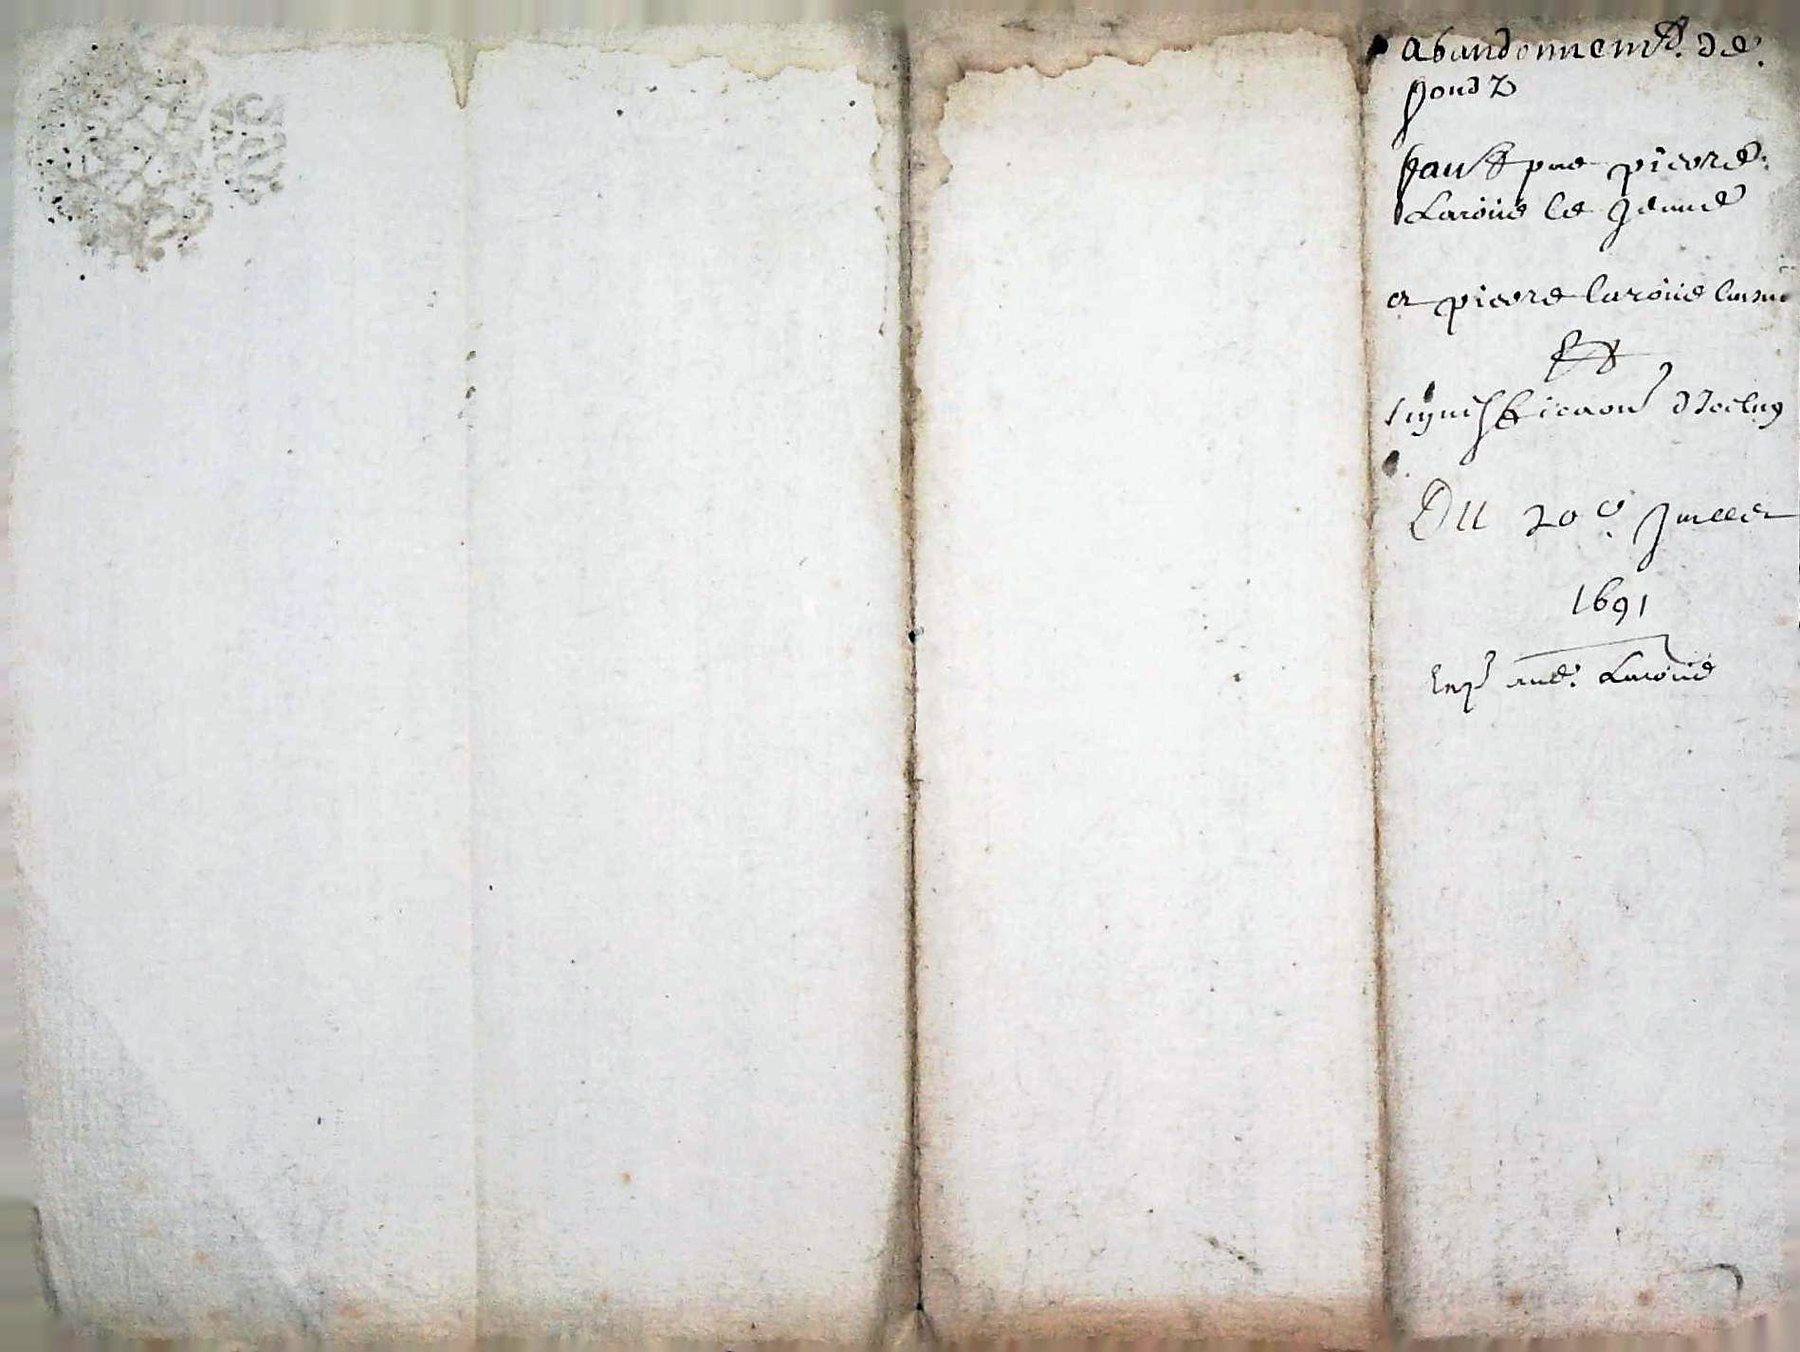 abandonnemt. de
fondz
faict par pierre
Laroue le jeune
et pierre laroue laisne
Et
signiffication d'Iceluy
Du 20e. Juillet
1691
Laroüe